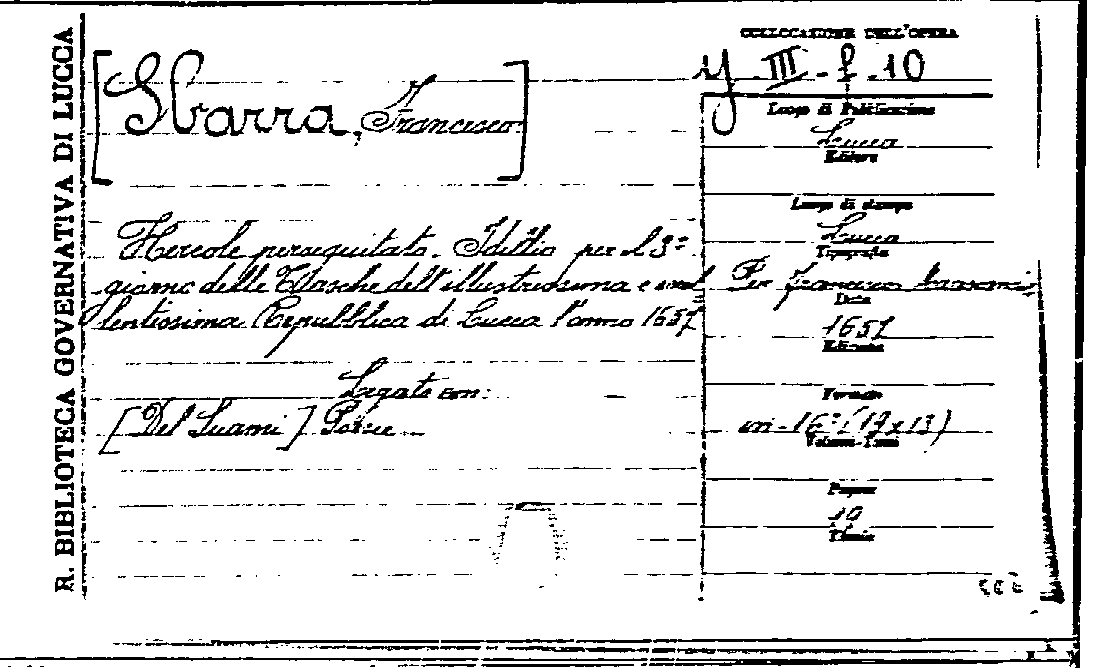 R. BIBLIOTECA GOVERNATIVA DI LUCCA
COLLOCAZIONE DELL'OPERA
y - III - f. 10
[Sbarra, Francesco]
Luogo di Pubblicazione
Lucca
Editore
Luogo di stampa
Lucca
Tipografia
Hercole perseguitato. Idillio per il 3°
giorno delle Tasche dell'illustrissima e eccel
lentissima Repubblica di Lucca l'anno 1657
Per Francesco
Data
1657
Edizione
Legato con:
[Del ] Poesie
Formato
in-16° (17x13)
Volume-Tomi
Pagine
10